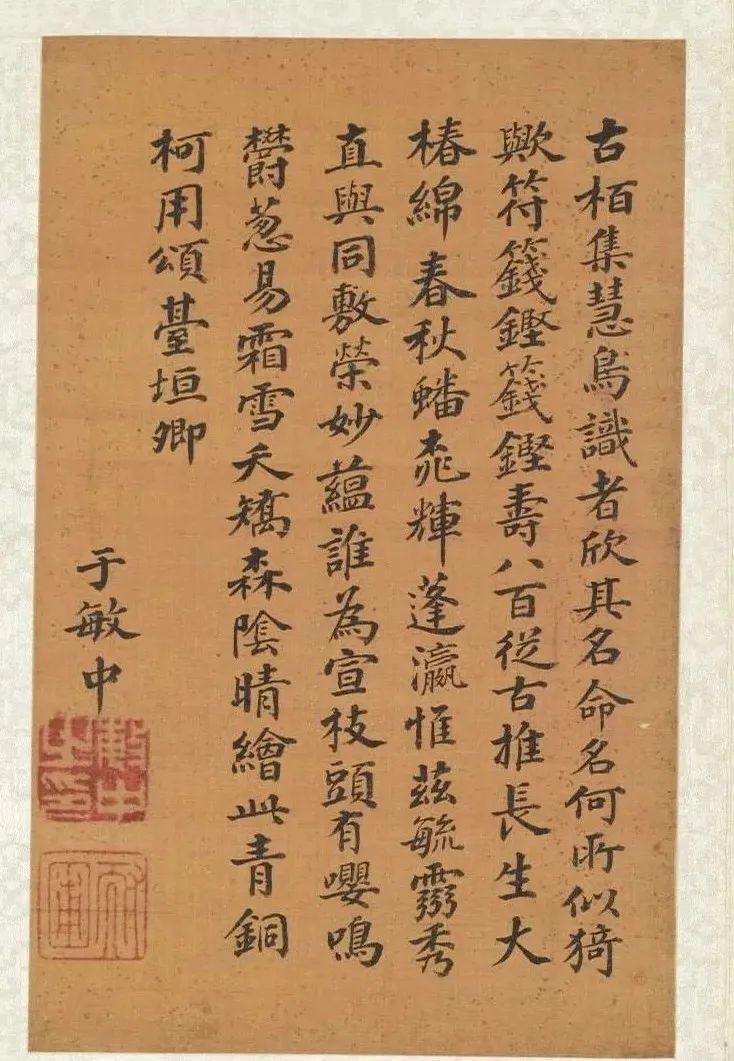 古栢集慧鳥識者欣其名命名何所似猗
歟符籛鏗籛鏗壽八百從古推長生大
椿綿春秋蟠桃輝蓬瀛惟茲毓靈秀
直與同敷榮妙蘊誰為宣枝頭有嚶鳴
欝葱易霜雪夭矯森陰晴繪此青銅
柯用頌臺垣卿
于敏中